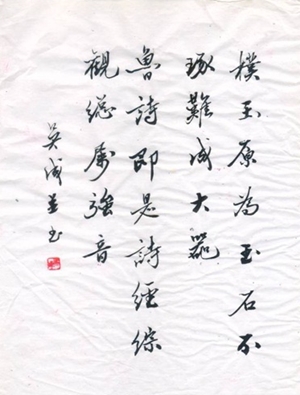 樸玉原為玉石不
琢難成大器
魯詩即是詩經綜
觀總屬強音
吳成並书